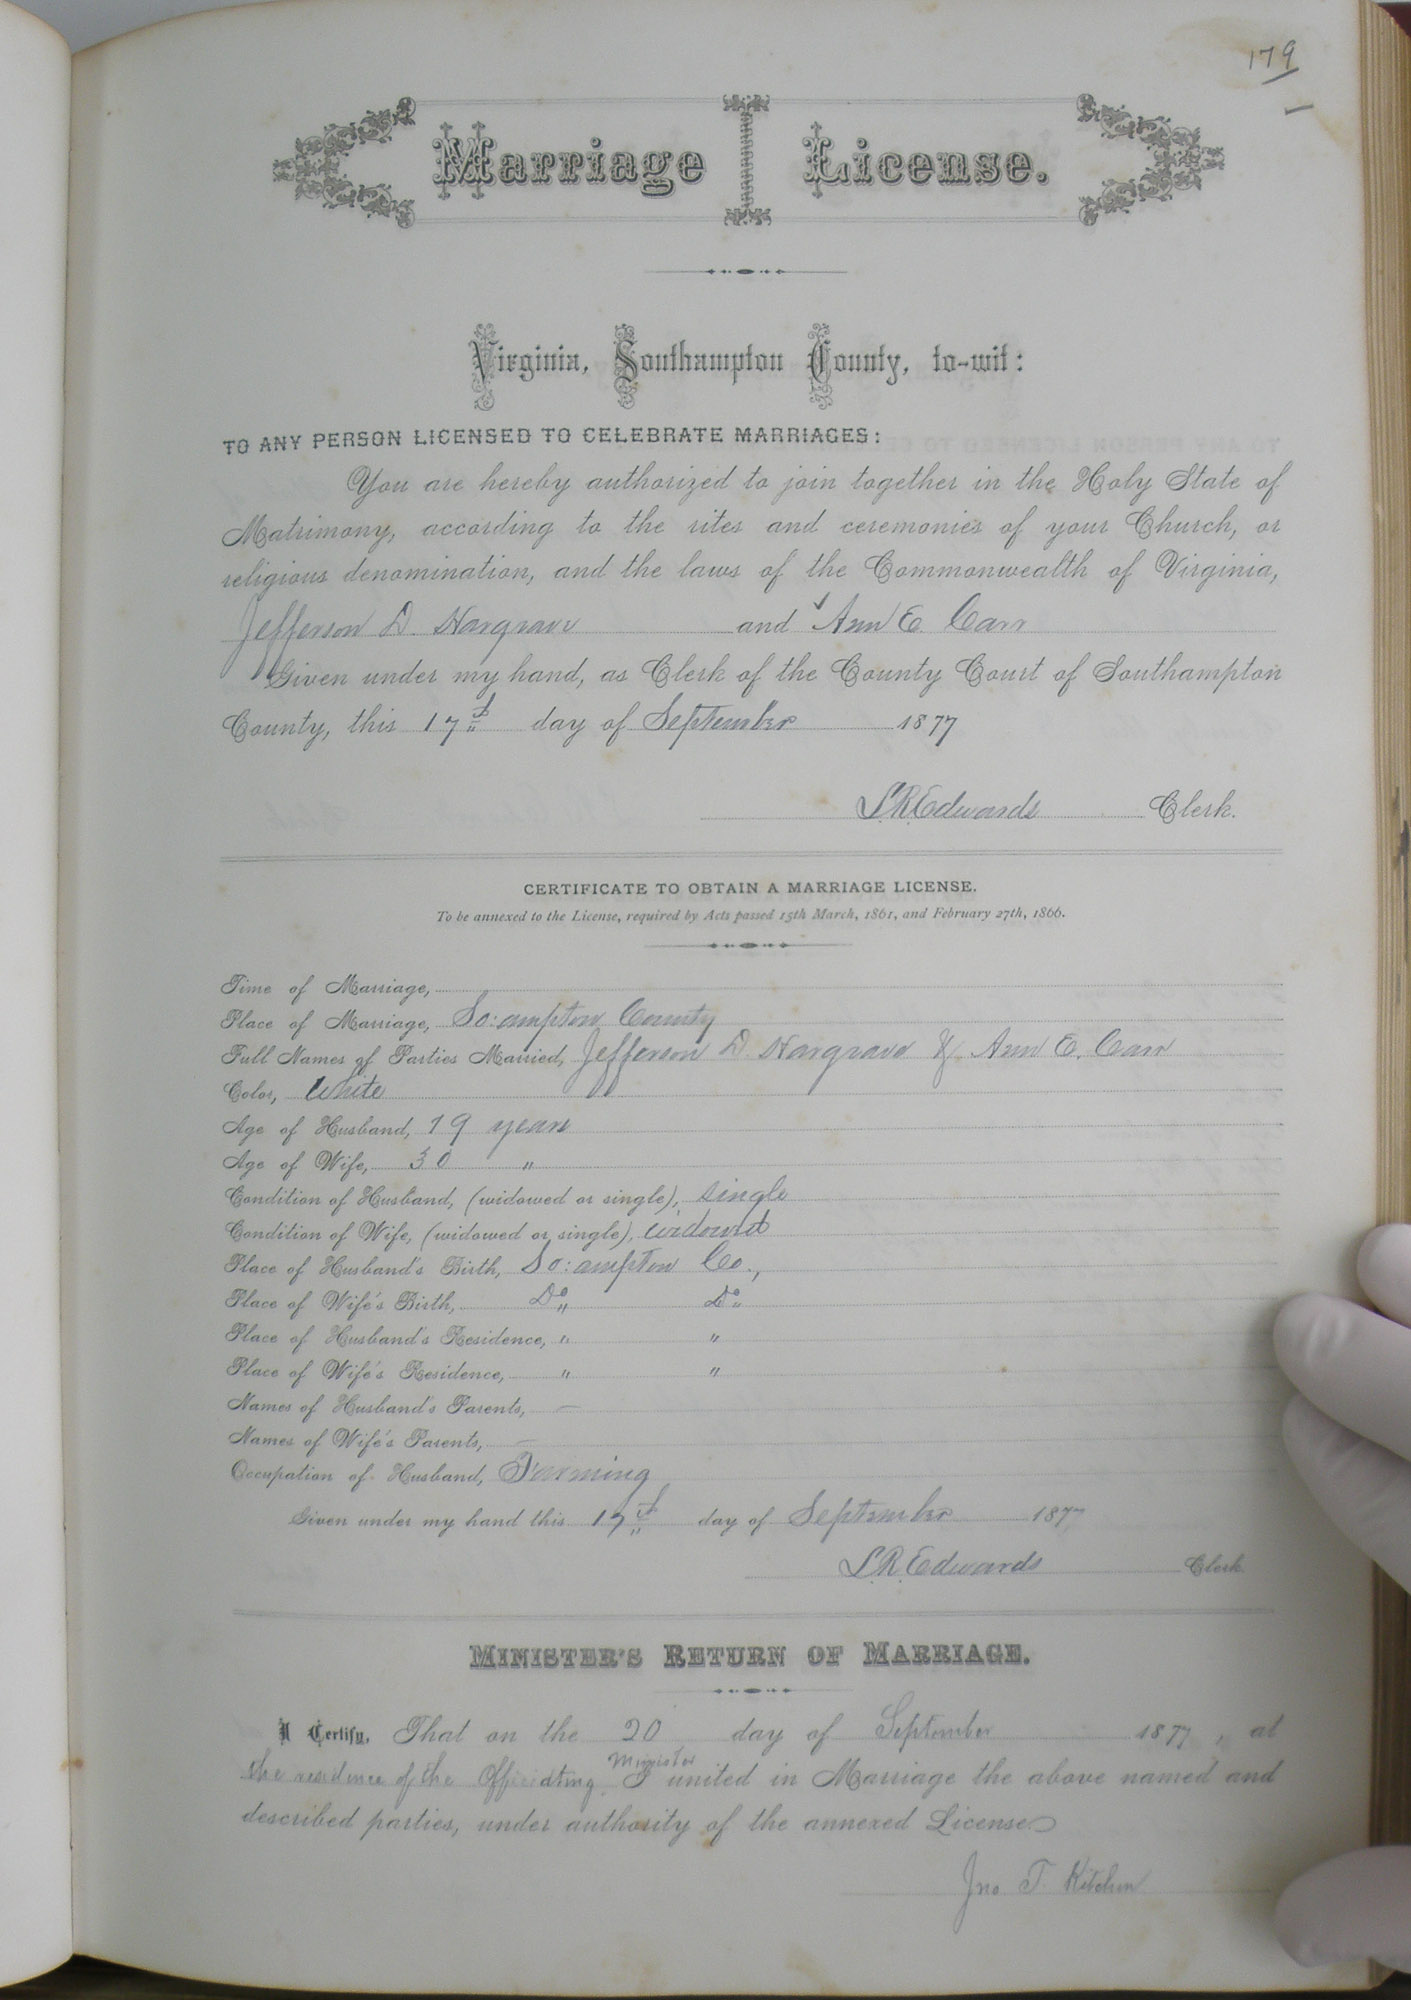 179
Marriage License.
Virginia, Southampton County, to-wit:
TO ANY PERSON LICENSED TO CELEBRATE MARRIAGES:
You are hereby authorized to join together in the Holy State of
Matrimony, according to the rites and ceremonies of your Church, or
religious denomination, and the laws of the Commonwealth of Virginia,
Jefferson D. Hargrave and Ann E. Carr
Given under my hand, as Clerk of the County Court of Southampton
County, this 17th day of September 1877
L.R. Edwards Clerk.
CERTIFICATE TO OBTAIN A MARRIAGE LICENSE.
To be annexed to the License, required by Acts passed 15th March, 1861, and February 27th, 1866.
Time of Marriage,
Place of Marriage, So:ampton County
Full Names of Parties Married, Jefferson D. Hargrave & Ann E. Carr
Color, White
Age of Husband, 19 years
Age of Wife, 30 "
Condition of Husband, (widowed or single), single
Condition of Wife, (widowed or single), widowed
Place of Husband's Birth, So:ampton Co.,
Place of Wife's Birth, Do Do
Place of Husband's Residence, " "
Place of Wife's Residence, " "
Names of Husband's Parents, —
Names of Wife's Parents, —
Occupation of Husband, Farming
Given under my hand this 17th day of September 1877
L.R. Edwards Clerk
MINISTER'S RETURN OF MARRIAGE.
I Certify, That on the 20 day of September 1877, at
the residence of the Officiating Minister I united in Marriage the above named and
described parties, under authority of the annexed License.
Jno. T. Kitchen